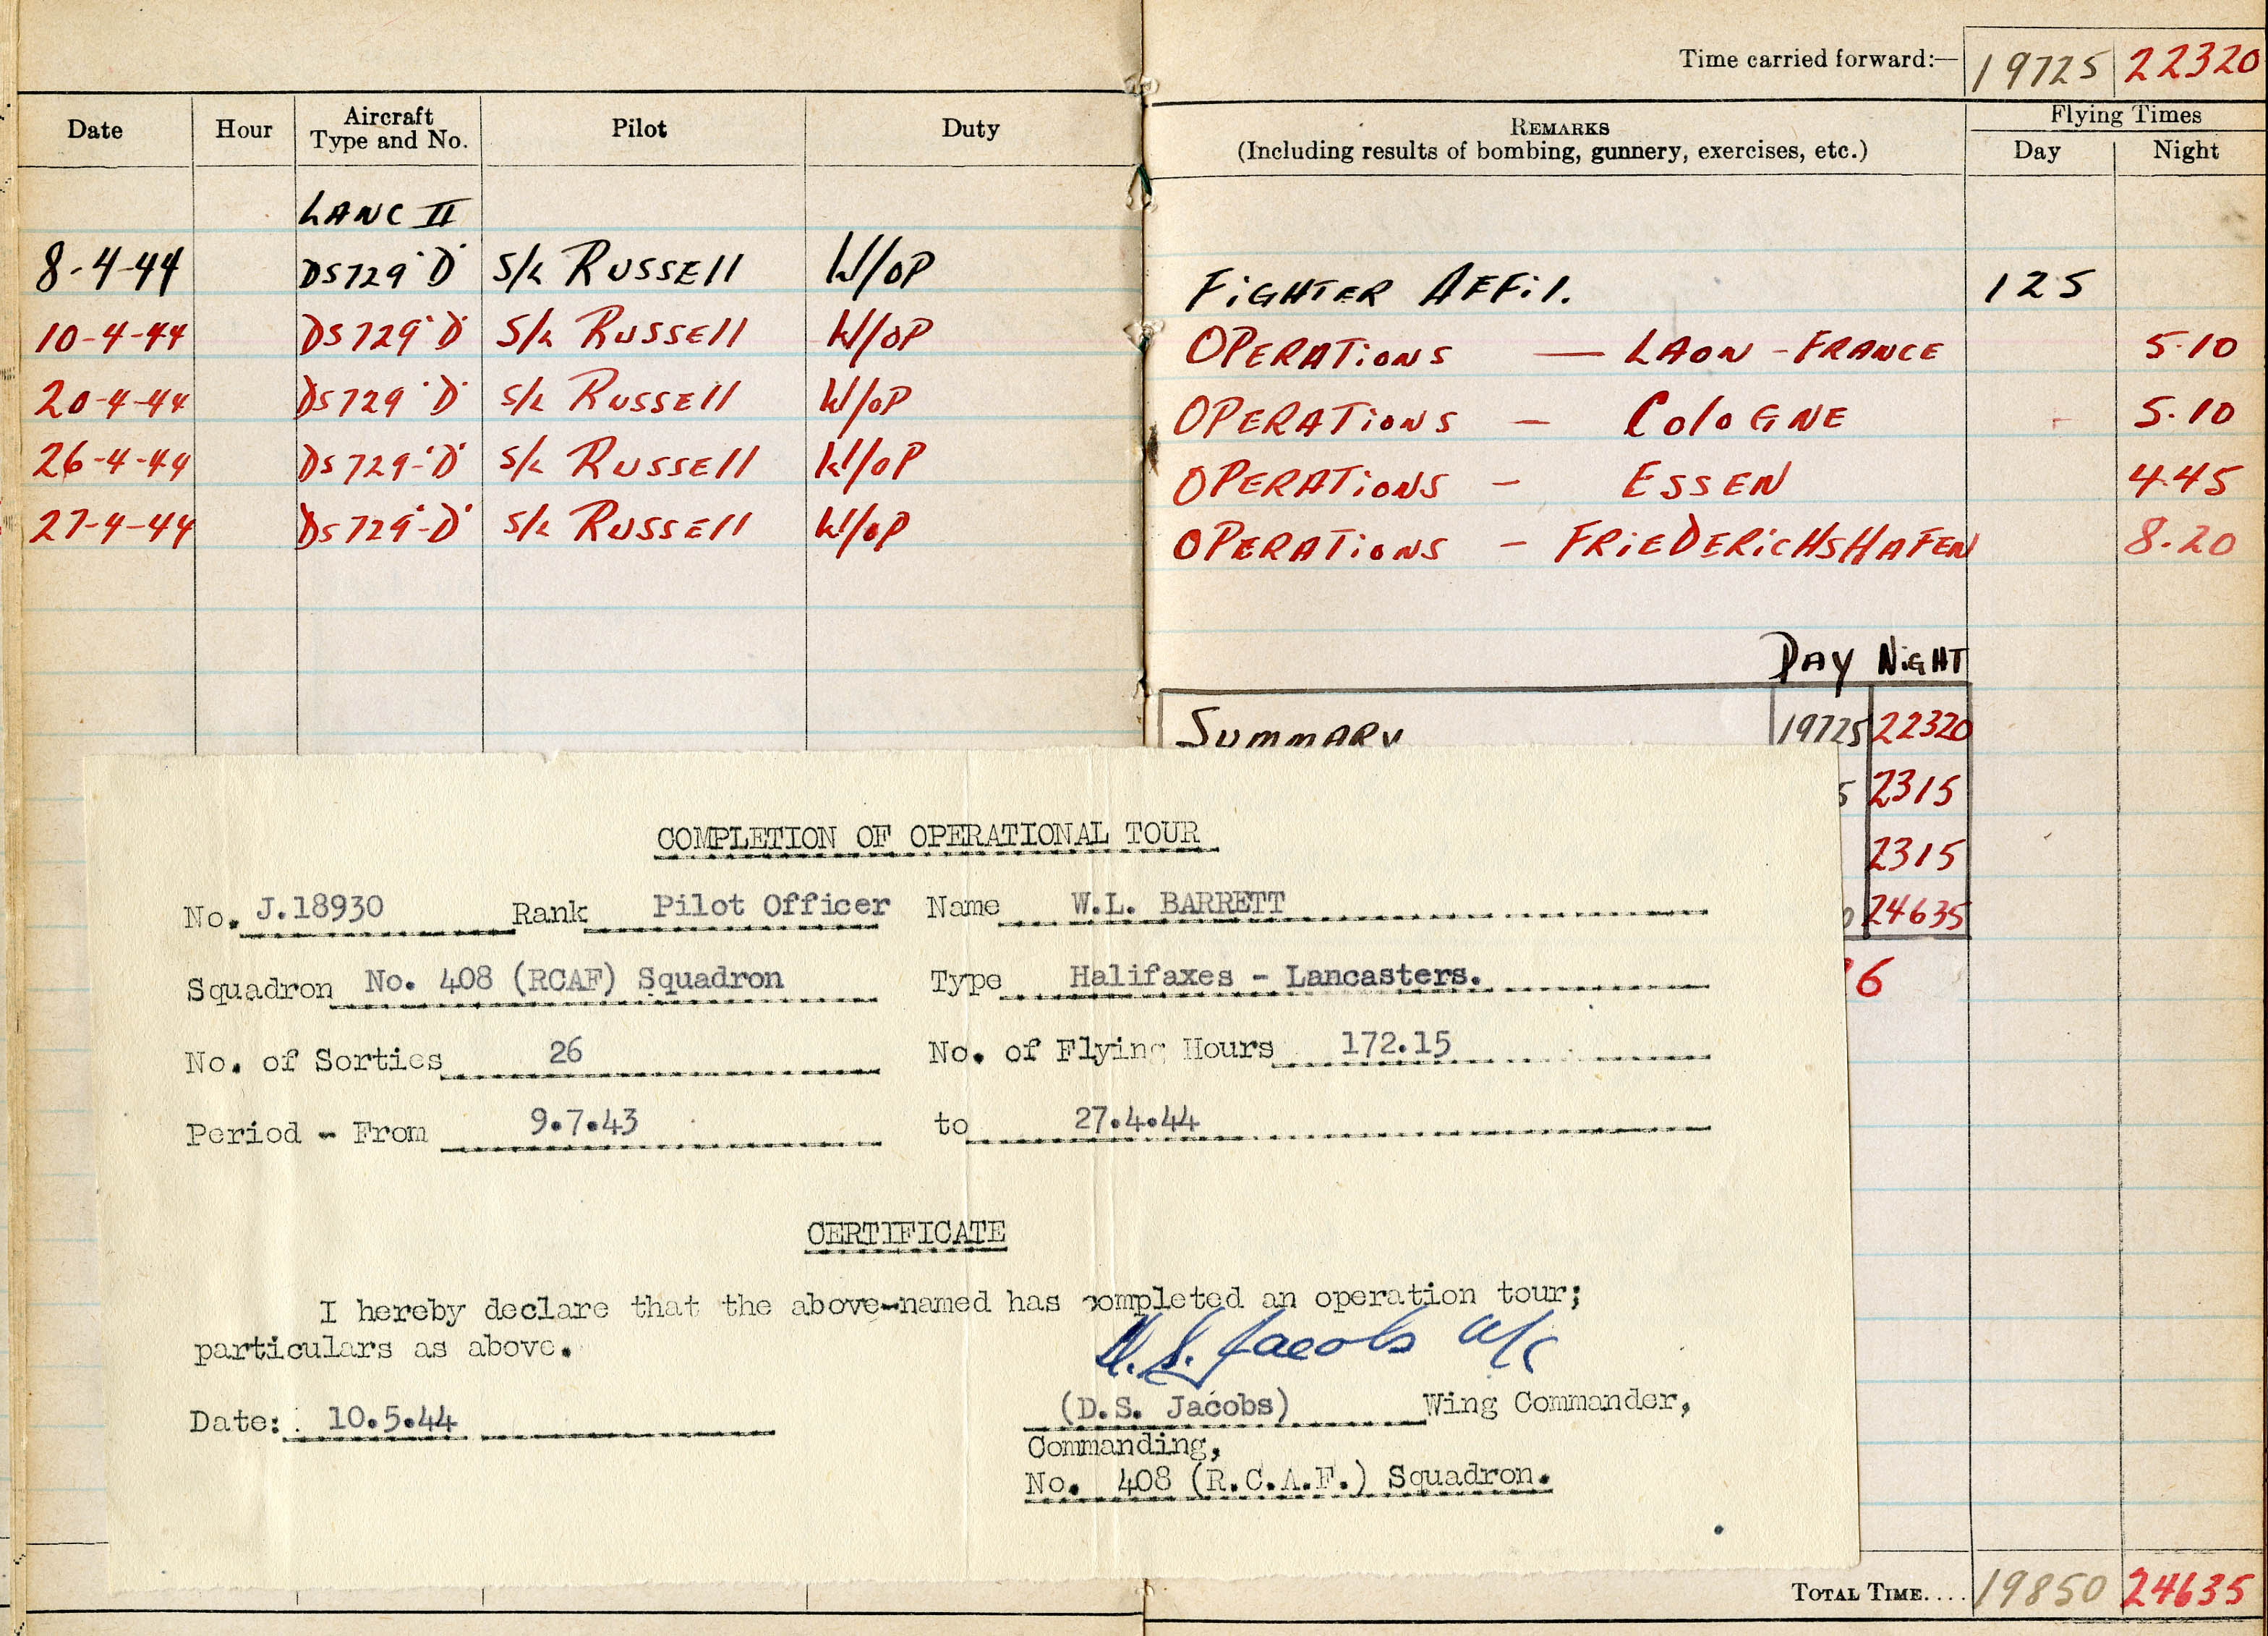 Time carried forward:— 19725 22320
Date Hour Aircraft Type and No. Pilot Duty REMARKS (Including results of bombing, gunnery, exercises, etc.) Flying Times Day Night
LANC II
8-4-44 DS729 "D" S/L RUSSELL W/OP FIGHTER AFFIL. 1.25
10-4-44 DS729 "D" S/L RUSSELL W/OP OPERATIONS — LAON - FRANCE 5.10
20-4-44 DS729 "D" S/L RUSSELL W/OP OPERATIONS — COLOGNE 5.10
26-4-44 DS729-"D" S/L RUSSELL W/OP OPERATIONS — ESSEN 4.45
27-4-44 DS729-"D" S/L RUSSELL W/OP OPERATIONS — FRIEDERICHSHAFEN 8.20
DAY NIGHT
SUMMARY 19725 22320
5 2315
2315
0 24635
6
COMPLETION OF OPERATIONAL TOUR
No. J.18930 Rank Pilot Officer Name W.L. BARRETT
Squadron No. 408 (RCAF) Squadron Type Halifaxes - Lancasters.
No. of Sorties 26 No. of Flying Hours 172.15
Period - From 9.7.43 to 27.4.44
CERTIFICATE
I hereby declare that the above-named has completed an operation tour;
particulars as above.
D.S. Jacobs W/C
Date: 10.5.44 (D.S. Jacobs) Wing Commander,
Commanding,
No. 408 (R.C.A.F.) Squadron.
TOTAL TIME.... 19850 24635